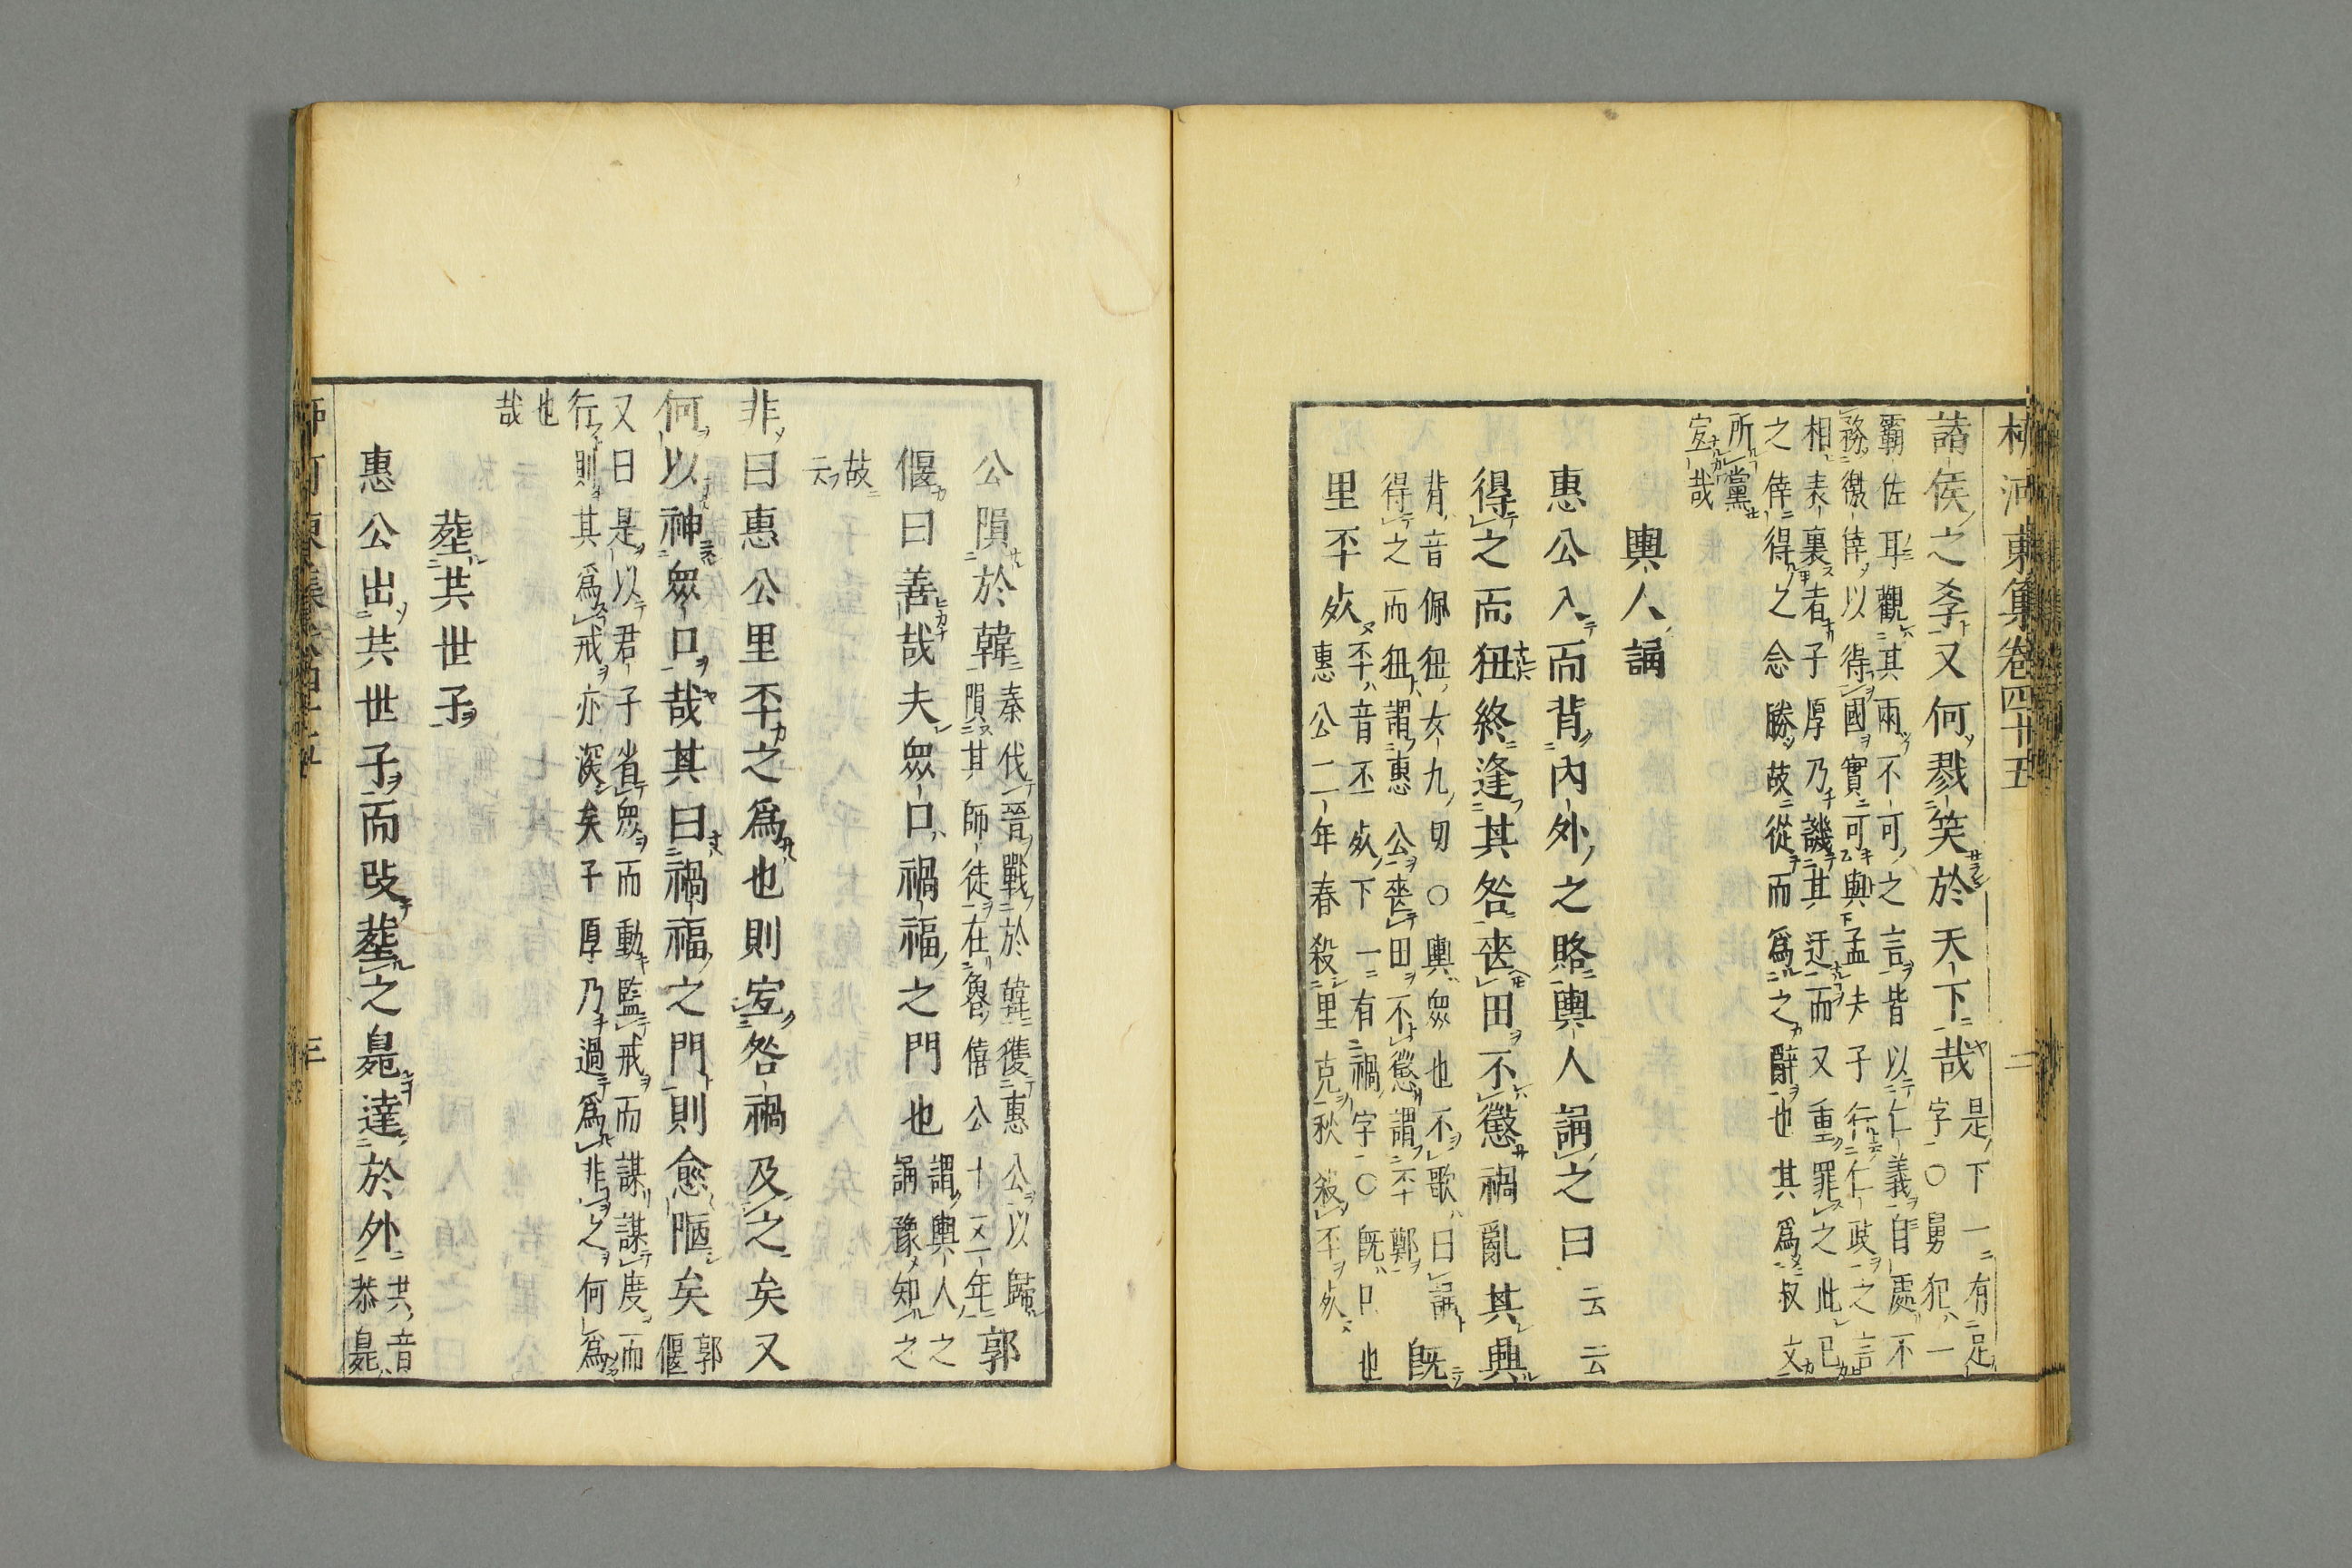 柳河東集卷四十五 二
諸侯之孝又何戮笑於天下哉是下一有足
字一○舅犯一
霸佐耳觀其兩不可之言皆以仁義自處不
務徼倖以得國實可與孟夫子行仁政之言
相表裏者子厚乃譏其迂而又重罪之此已
之倖得之念勝故從而爲之辭也其爲叔文
所黨
宜哉
輿人誦
惠公入而背內外之賂輿人誦之曰云云
得之而狃終逢其咎喪田不懲禍亂其興
背音佩狃女九切○輿衆也不歌曰誦
得之而狃謂惠公喪田不懲謂丕鄭
既
里丕死丕音丕死下一有禍字○既已也
惠公二年春殺里克秋殺丕死
公隕於韓秦伐晉戰於韓獲惠公以歸
隕其師徒在魯僖公十五年
郭
偃曰善哉夫衆口禍福之門也謂輿人之
誦豫知之
故
云
非曰惠公里丕之爲也則宜咎禍及之矣又
何以神衆口哉其曰禍福之門則愈陋矣郭
偃
又曰是以君子省衆而動監戒而謀謀度而
行則其爲戒亦深矣子厚乃過爲非之何爲
也
哉
葬共世子
惠公出共世子而改葬之臭達於外共音
恭臭
柳河東集卷四十五 三